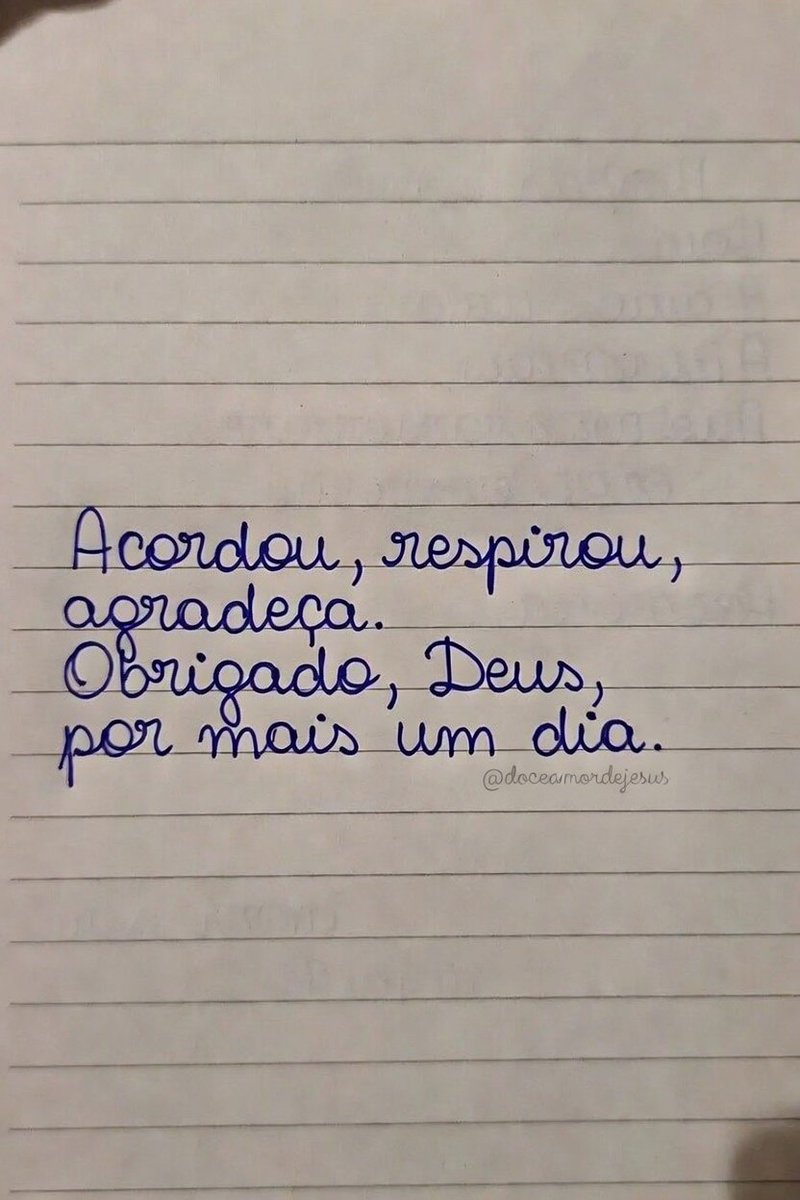 Acordou, respirou,
agradeça.
Obrigado, Deus,
por mais um dia.
@doceamordejesus